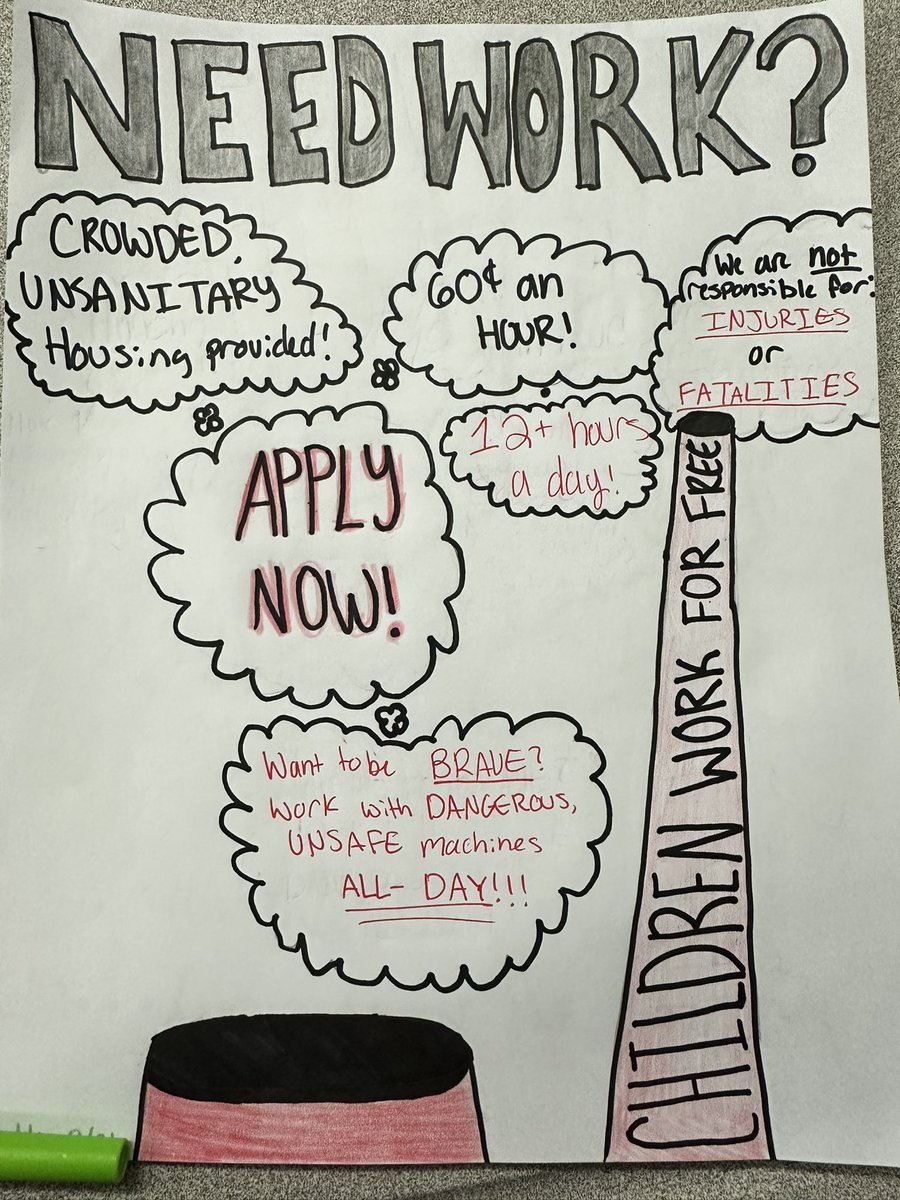 NEED WORK?
CROWDED,
UNSANITARY
Housing provided!
60¢ an
HOUR!
We are not
responsible for:
INJURIES
or
FATALITIES
12+ hours
a day!
APPLY
NOW!
Want to be BRAVE?
Work with DANGEROUS,
UNSAFE machines
ALL-DAY!!!
CHILDREN WORK FOR FREE